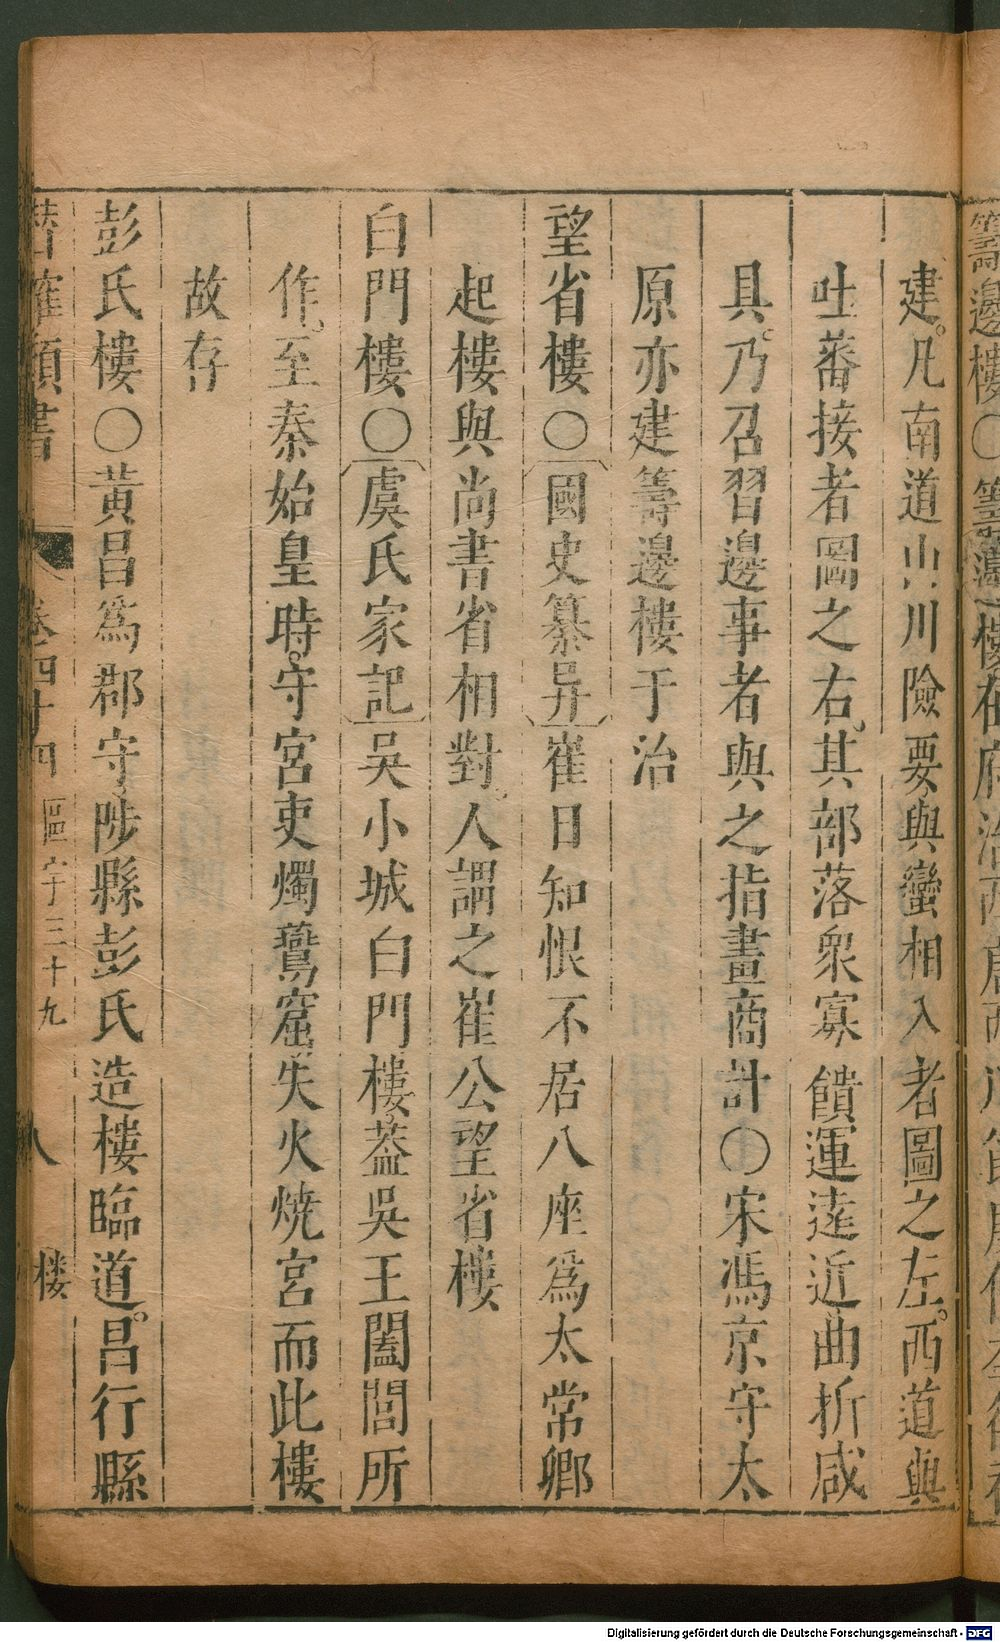 籌邊樓○籌邊樓在府治西唐
建。凡南道山川險要與蠻相入者圖之左。西道與
吐蕃接者圖之右。其部落衆寡饋運遠近曲折咸
具。乃召習邊事者與之指畫商計○宋馮京守太
原亦建籌邊樓于治
望省樓○國史纂异崔日知恨不居八座爲太常卿
起樓與尚書省相對。人謂之崔公望省樓
白門樓○虞氏家記吳小城白門樓葢吳王闔閭所
作。至秦始皇時。守宮吏燭鷰窟失火焼宮而此樓
故存
彭氏樓○黃昌爲郡守陟縣彭氏造樓臨道。昌行縣
潛確類書 卷四十四 區宇三十九 八 楼
Digitalisierung gefördert durch die Deutsche Forschungsgemeinschaft - DFG